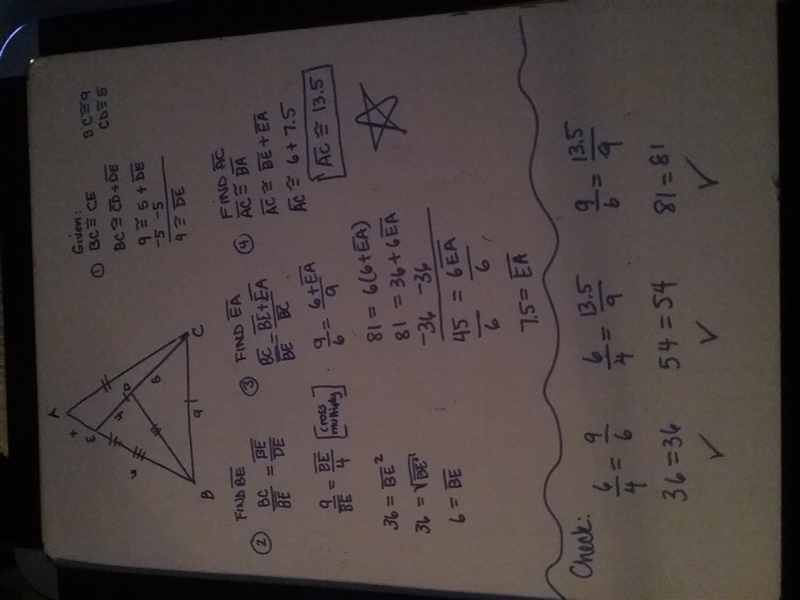 A
x
E
4
D
5
y
B
9
C
Given:
① BC ≅ CE
BC ≅ CD + DE
9 ≅ 5 + DE
-5 -5
4 ≅ DE
BC ≅ 9
CD ≅ 5
② FIND BE
BC/BE = BE/DE
9/BE = BE/4 [cross multiply]
36 = BE²
36 = √BE²
6 = BE
③ FIND EA
BC/BE = BE + EA/BC
9/6 = 6 + EA/9
81 = 6(6 + EA)
81 = 36 + 6EA
-36 -36
45/6 = 6EA/6
7.5 = EA
④ FIND AC
AC ≅ BA
AC ≅ BE + EA
AC ≅ 6 + 7.5
AC ≅ 13.5
Check:
6/4 = 9/6
36 = 36
✓
6/4 = 13.5/9
54 = 54
✓
9/6 = 13.5/9
81 = 81
✓